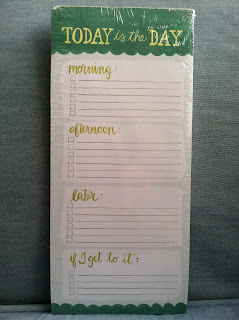 TODAY is the DAY
morning:
afternoon:
later:
if I get to it: